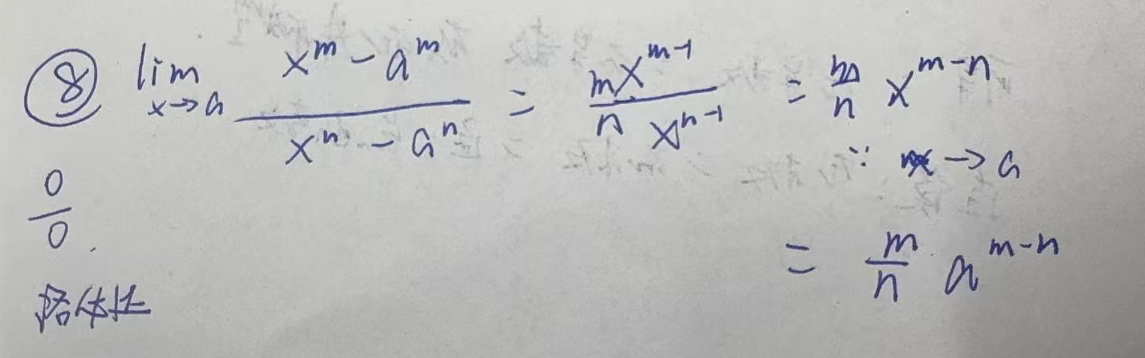 ⑧ lim x→a (x^m - a^m)/(x^n - a^n) = (m x^(m-1))/(n x^(n-1)) = m/n x^(m-n)
∵ x→a
0/0.
= m/n a^(m-n)
洛